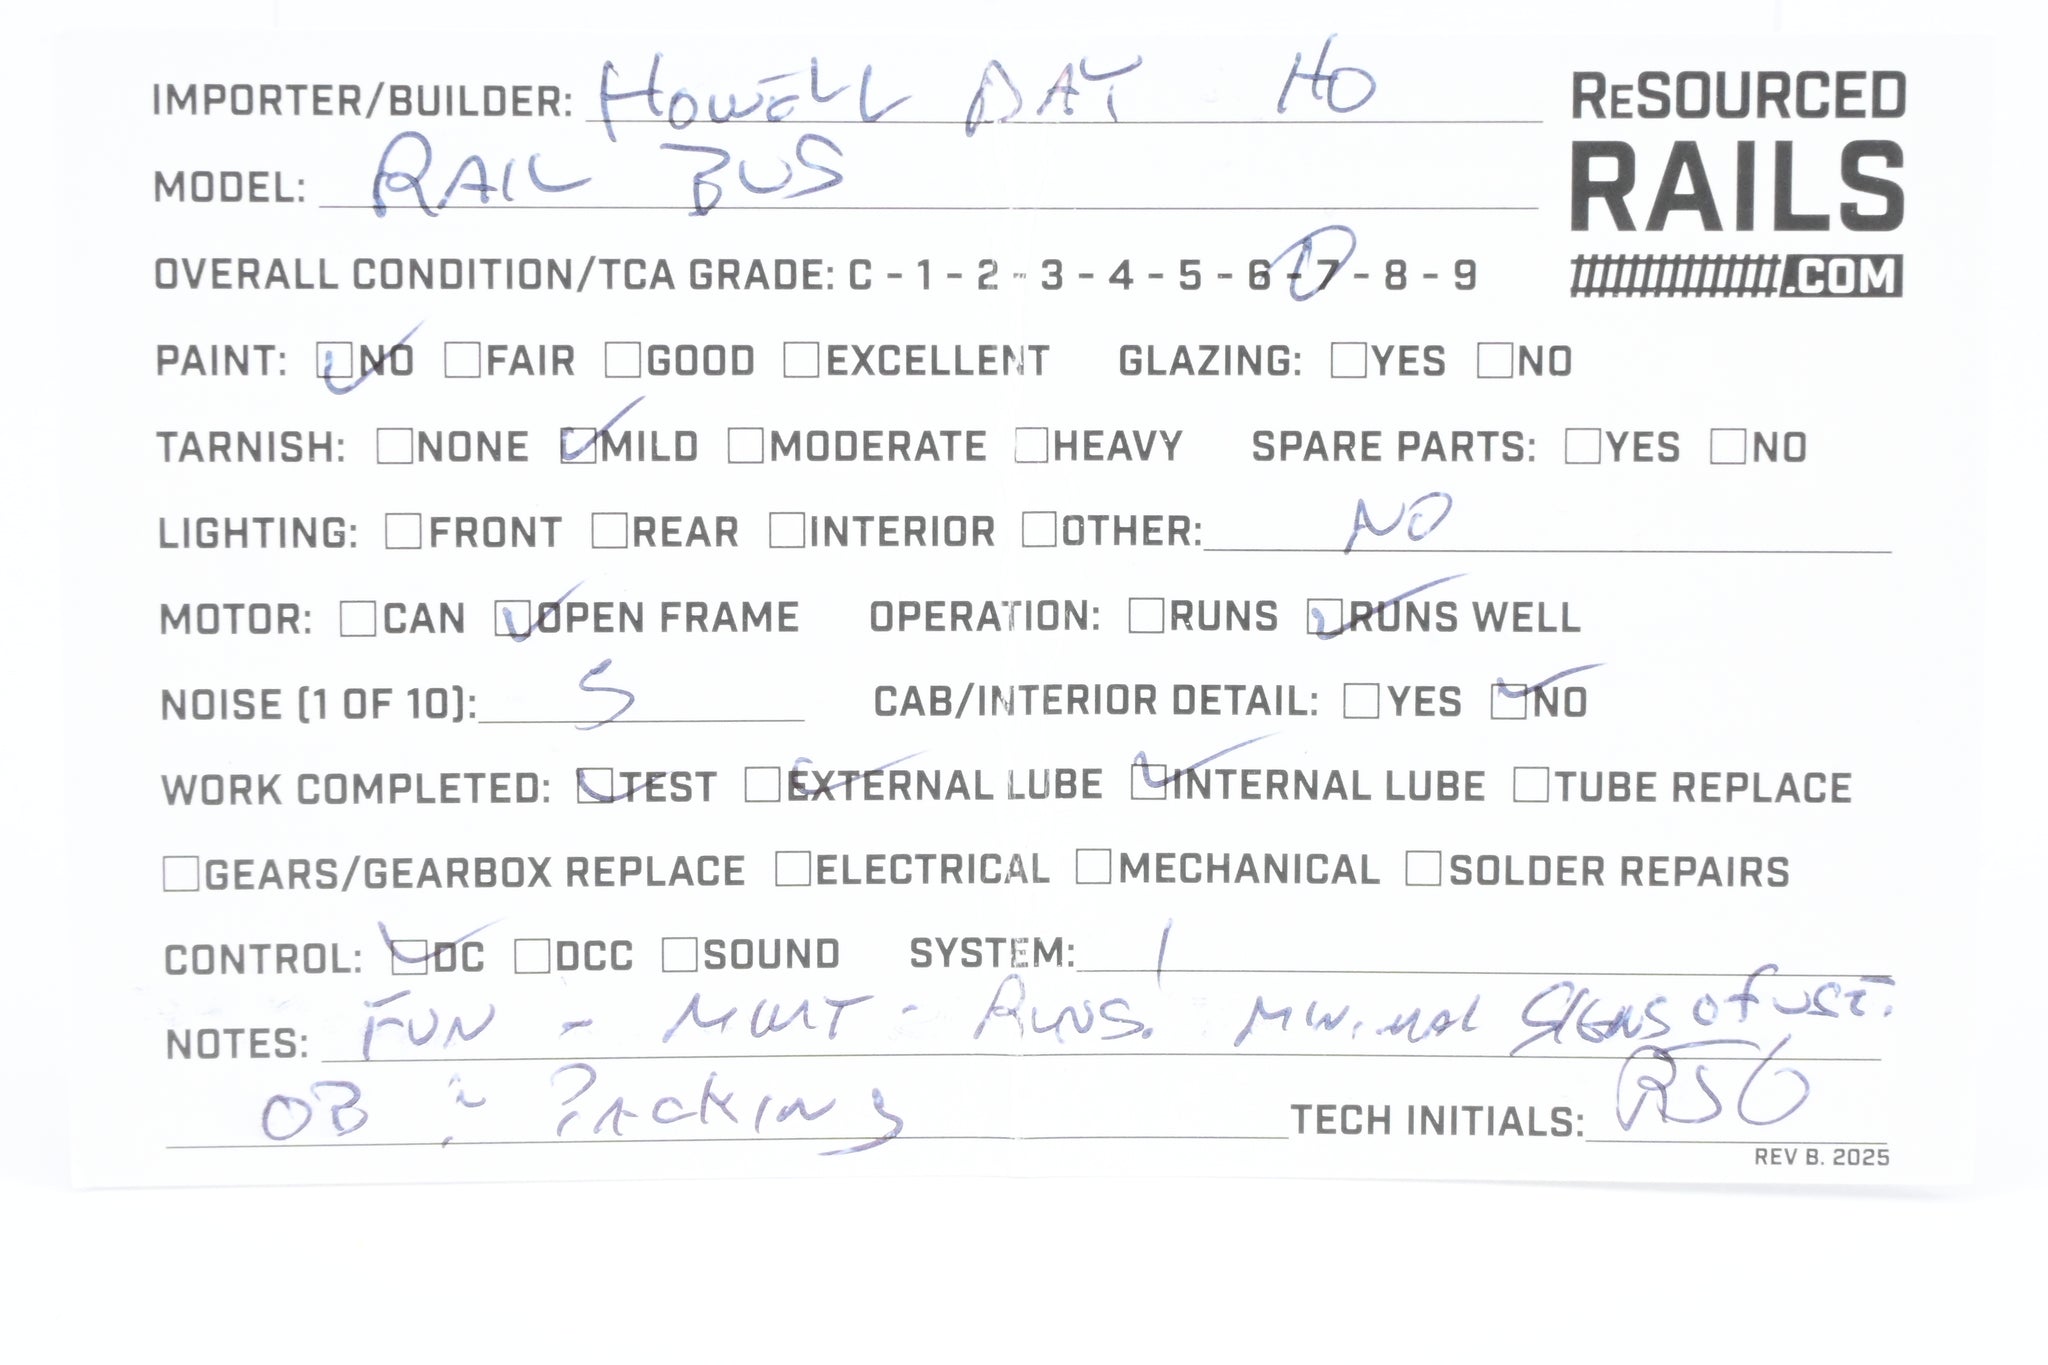 IMPORTER/BUILDER: HOWELL DAY HO
RESOURCED
RAILS
.COM
MODEL: RAIL BUS
OVERALL CONDITION/TCA GRADE: C - 1 - 2 - 3 - 4 - 5 - 6 - 7 - 8 - 9
PAINT: NO FAIR GOOD EXCELLENT GLAZING: YES NO
TARNISH: NONE MILD MODERATE HEAVY SPARE PARTS: YES NO
LIGHTING: FRONT REAR INTERIOR OTHER: NO
MOTOR: CAN OPEN FRAME OPERATION: RUNS RUNS WELL
NOISE (1 OF 10): 5 CAB/INTERIOR DETAIL: YES NO
WORK COMPLETED: TEST EXTERNAL LUBE INTERNAL LUBE TUBE REPLACE
GEARS/GEARBOX REPLACE ELECTRICAL MECHANICAL SOLDER REPAIRS
CONTROL: DC DCC SOUND SYSTEM:
NOTES: FUN - - RUNS! MINIMAL SIGNS OF USE.
OB PACKING TECH INITIALS:
REV B. 2025